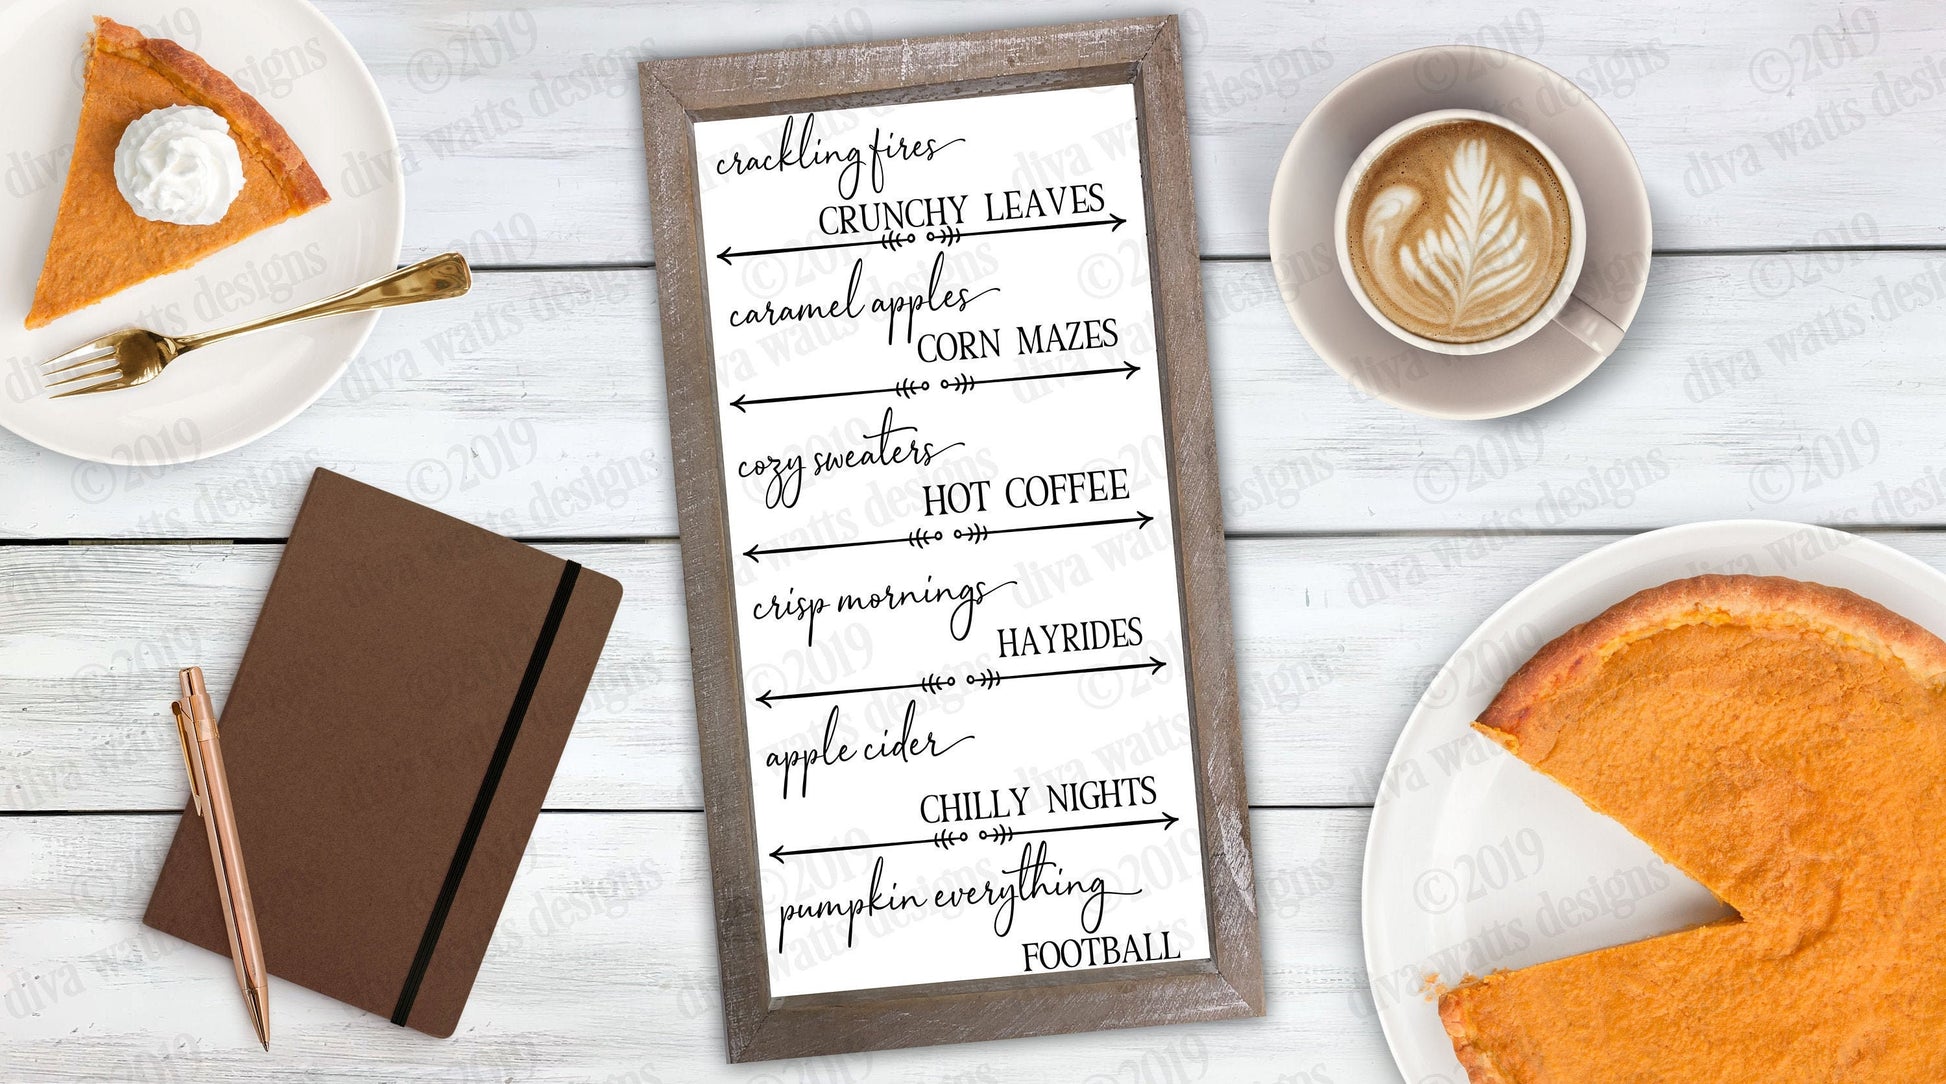 crackling fires
CRUNCHY LEAVES
caramel apples
CORN MAZES
cozy sweaters
HOT COFFEE
crisp mornings
HAYRIDES
apple cider
CHILLY NIGHTS
pumpkin everything
FOOTBALL
©2019
diva watts designs